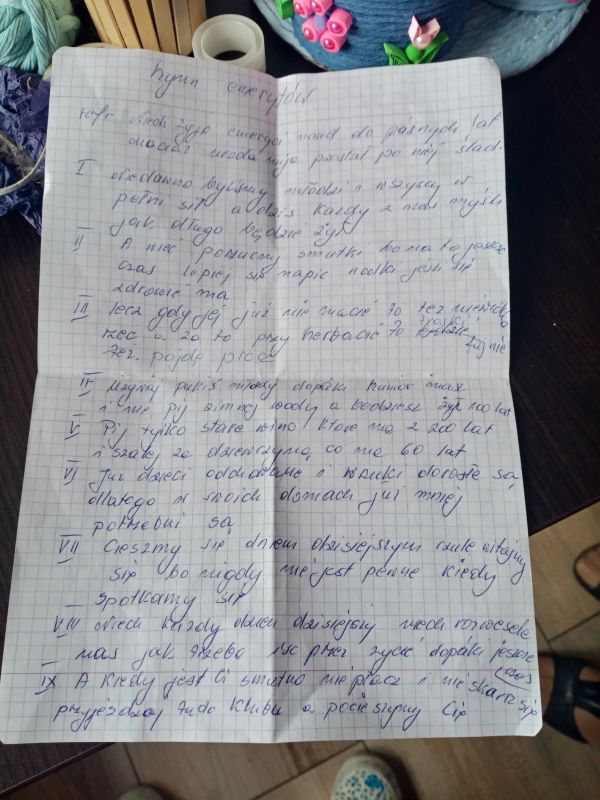 hymn emerytów
ref. Niech żyją emeryci nawd do późnych lat
chociaż uroda mija pozstał po niej ślad.
I Niedawno byliśmy młodzi i wszyscy w
pełni sił a dziś każdy z nas myśli
jak długo będzie żył
II A więc porzućmy smutki bo na to jeszcze
czas lepiej się napić wódki jeśli się
zdrowie ma
III lecz gdy jej już nie macie to też niewielka
rzec a za to przy herbacie to troski
też pójdą precz
IV Używaj pókiś młody dopóki humor masz
i nie pij zimnej wody a będziesz żył 100 lat
V Pij tylko stare wino które ma z 200 lat
i szalej za dziewczyną co ma 60 lat
VI Już dzieci odchowane i wnuki dorosłe są
dlatego w swoich domach już mniej
potrzebni są
VII Cieszmy się dniem dzisiejszym czule witajmy
się bo nigdy nie jest pewne kiedy
spotkamy się
VIII Niech każdy dzień dzisiejszy niech rozwesela
nas jak trzeba iść przez życie dopóki jeszcze
czas
IX A kiedy jest Ci smutno nie płacz i nie skarż się
przyjeżdżaj tu do klubu a pocieszymy Cię